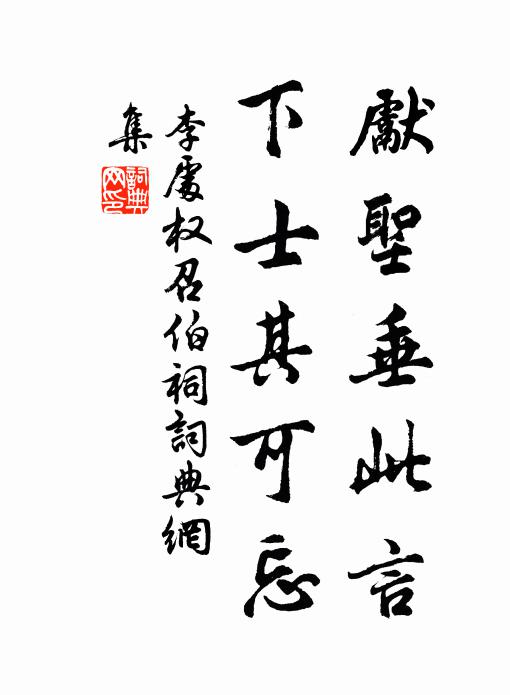 獻聖垂此言
下士其可忘
李處权召伯祠詞典網
集
詞典
网印